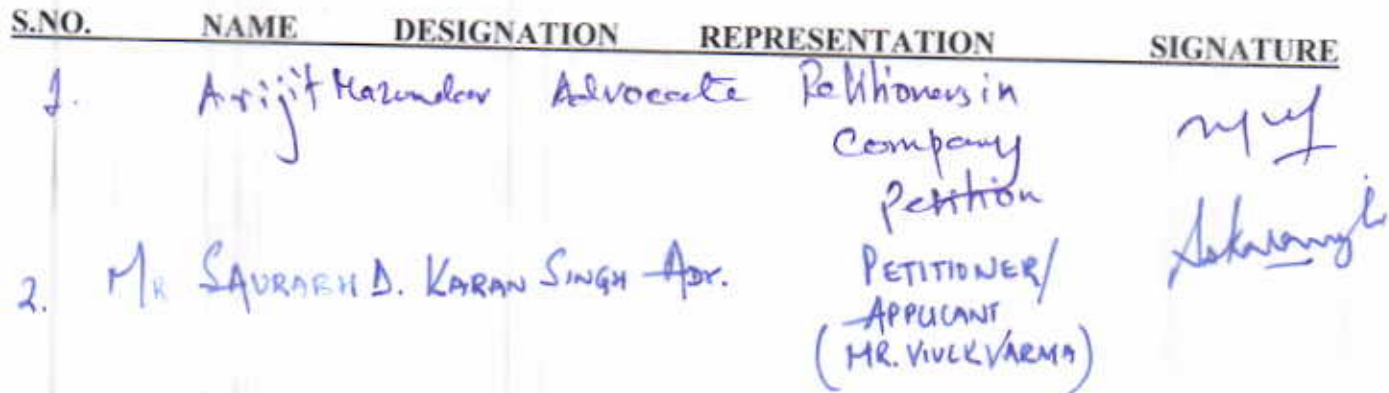 S.NO. NAME DESIGNATION REPRESENTATION SIGNATURE
1. Arijit Mazumdar Advocate Petitioners in
Company
Petition
2. Mr SAURABH D. KARAN SINGH Adv. PETITIONER/
APPLICANT
(MR. VIVEK VARMA)